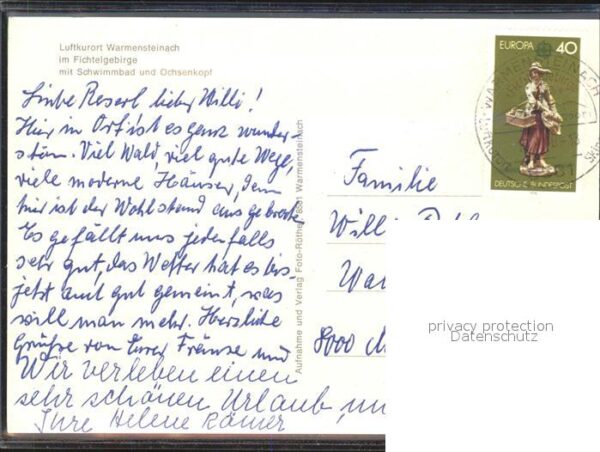 Luftkurort Warmensteinach
im Fichtelgebirge
mit Schwimmbad und Ochsenkopf
Liebe Reserl lieber Willi!
Hier im Ort ist es ganz wunder-
schön. Viel Wald, viel gute Wege,
viele moderne Häuser, denn
hier ist der Wohlstand ausgebrochen
Es gefällt uns jedenfalls
sehr gut, das Wetter hat es bis-
jetzt auch gut gemeint, was
will man mehr. Herzliche
Grüße von Eurer Fränze und
Wir verleben einen
sehr schönen Urlaub,
Ihre Helene Römer
Aufnahme und Verlag Foto-Röthel 8581 Warmensteinach
EUROPA 40
DEUTSCHE BUNDESPOST
WARMENSTEINACH
Luftkurort
Familie
Willi
8000
privacy protection
Datenschutz